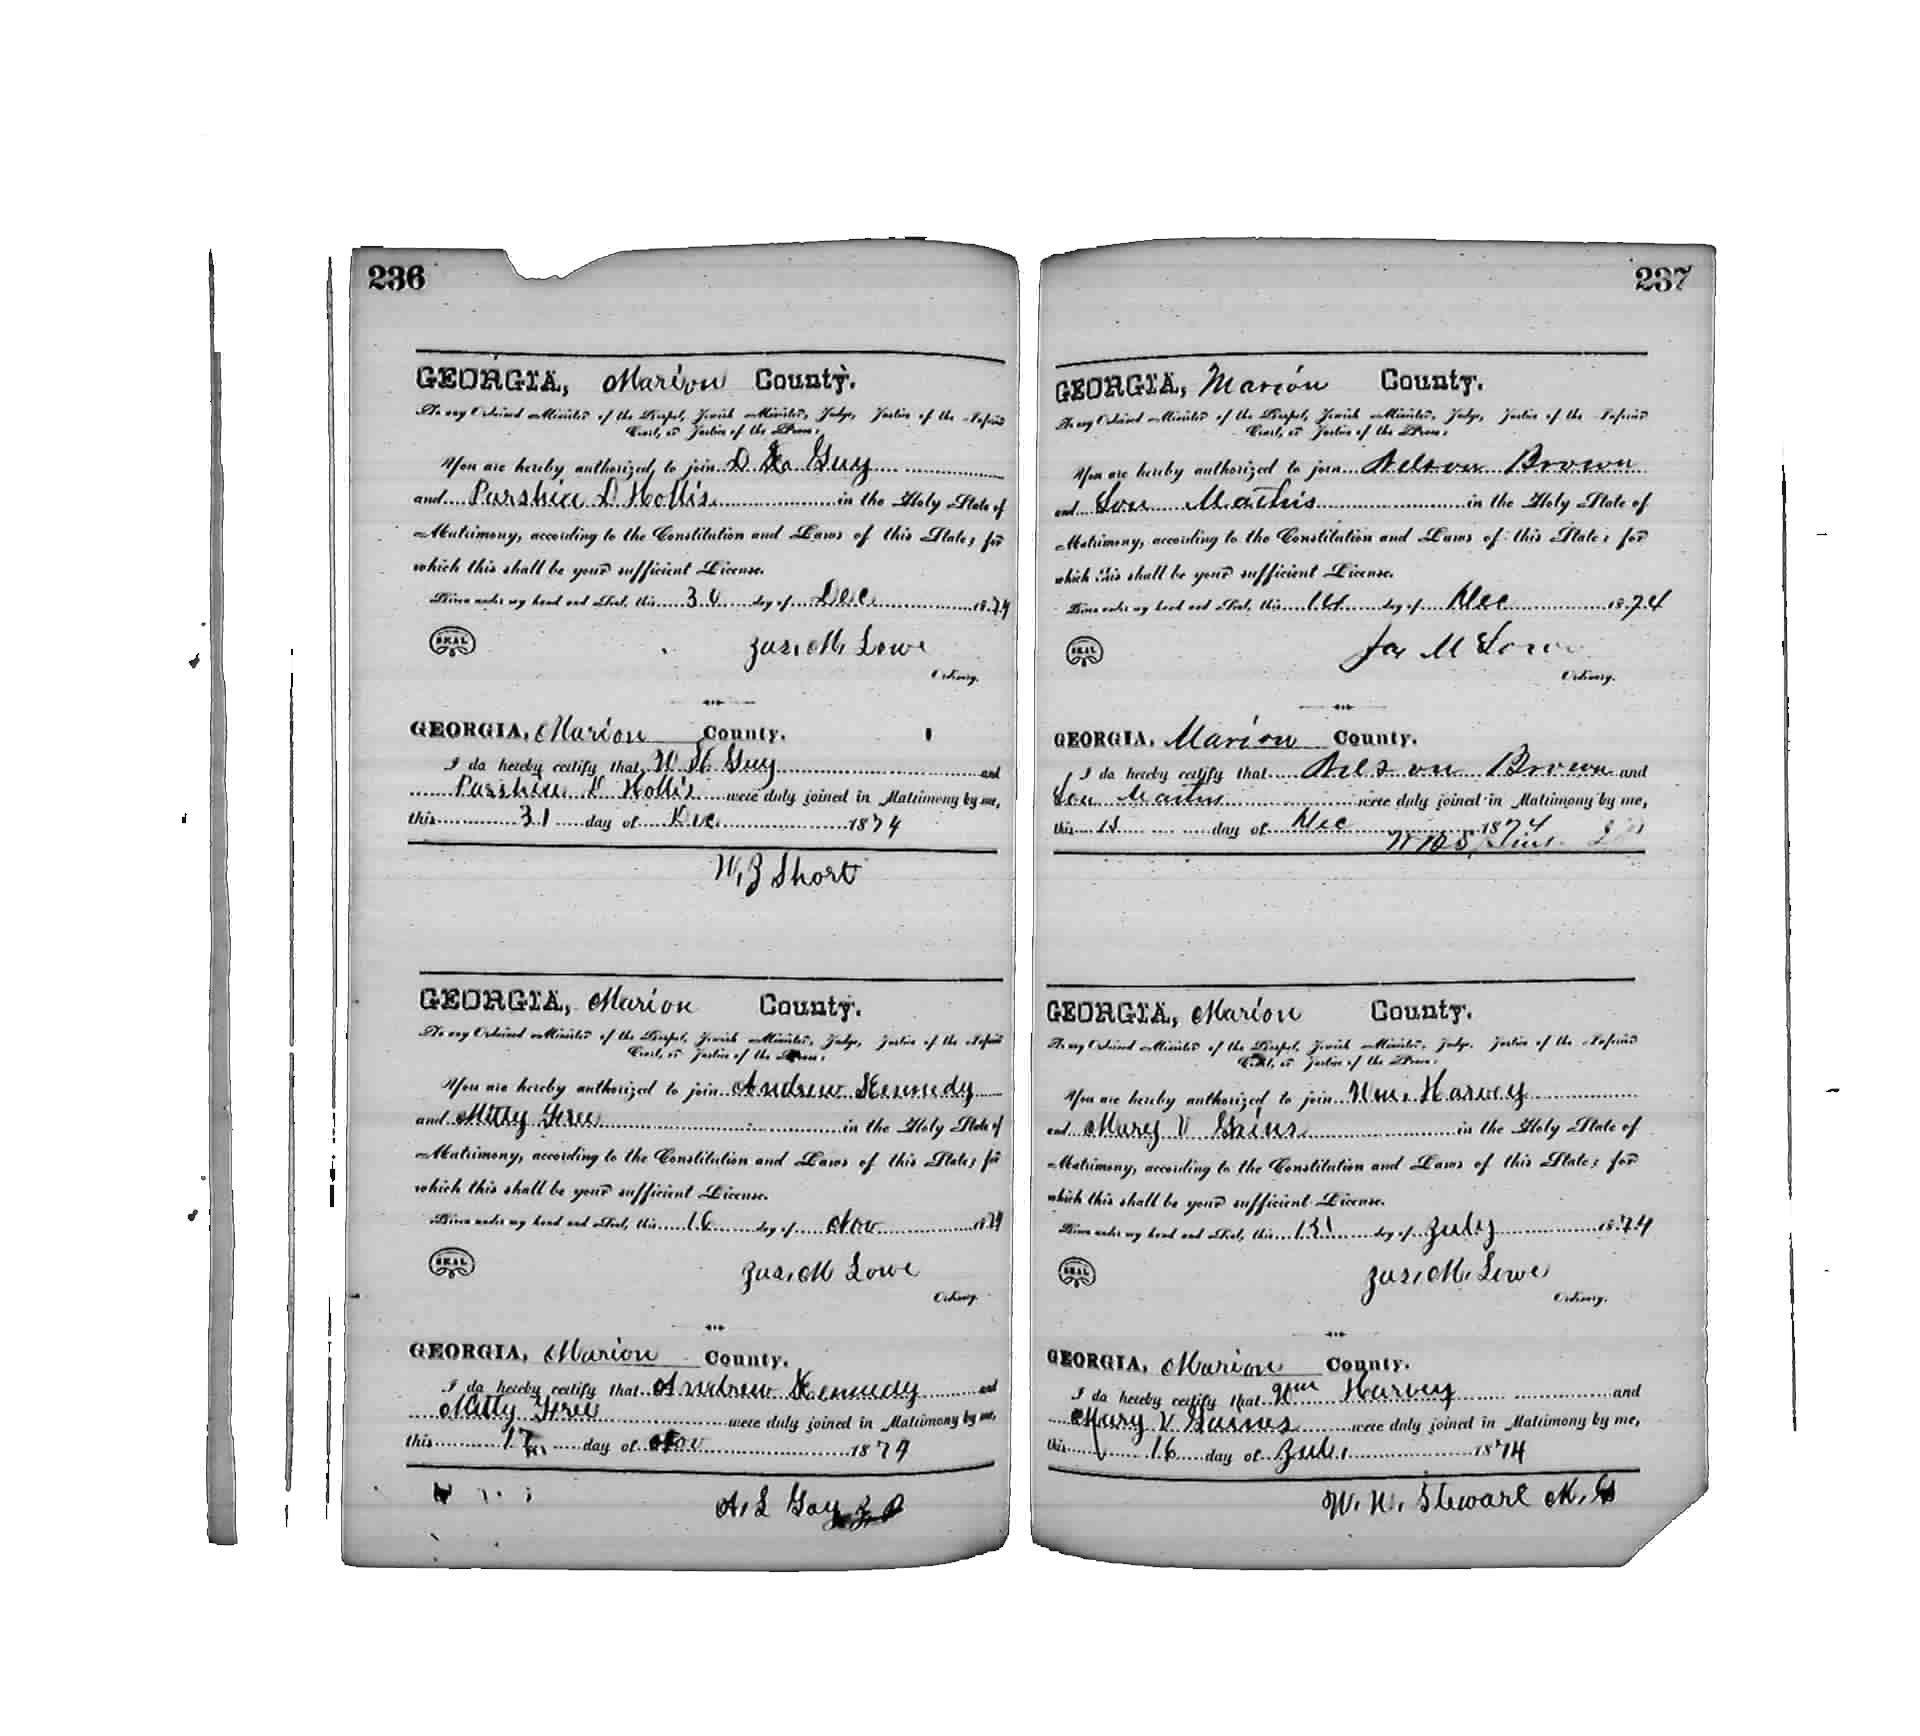 236
GEORGIA, Marion County.
To any Ordained Minister of the Gospel, Jewish Minister, Judge, Justice of the Inferior
Court, or Justice of the Peace:
You are hereby authorized to join D Guy
and Parshia D Hollis in the Holy State of
Matrimony, according to the Constitution and Laws of this State; for
which this shall be your sufficient License.
Given under my hand and Seal, this 30 day of Dec 1874
SEAL
Jas. M. Lowe
Ordinary.
GEORGIA, Marion County.
I do hereby certify that Guy and
Parshia D Hollis were duly joined in Matrimony by me,
this 31 day of Dec 1874
W, J Short
GEORGIA, Marion County.
To any Ordained Minister of the Gospel, Jewish Minister, Judge, Justice of the Inferior
Court, or Justice of the Peace:
You are hereby authorized to join Andrew Kennedy
and Mitty Free in the Holy State of
Matrimony, according to the Constitution and Laws of this State; for
which this shall be your sufficient License.
Given under my hand and Seal, this 16 day of Nov 1874
SEAL
Jas. M Lowe
Ordinary.
GEORGIA, Marion County.
I do hereby certify that Andrew Kennedy and
Mitty Free were duly joined in Matrimony by me,
this 17 day of Nov 1874
A, L Gay J P
237
GEORGIA, Marion County.
To any Ordained Minister of the Gospel, Jewish Minister, Judge, Justice of the Inferior
Court, or Justice of the Peace:
You are hereby authorized to join Nelson Brown
and Lou Mathis in the Holy State of
Matrimony, according to the Constitution and Laws of this State; for
which this shall be your sufficient License.
Given under my hand and Seal, this day of Dec 1874
SEAL
Jas M Lowe
Ordinary.
GEORGIA, Marion County.
I do hereby certify that Nelson Brown and
Lou Mathis were duly joined in Matrimony by me,
this day of Dec 1874
GEORGIA, Marion County.
To any Ordained Minister of the Gospel, Jewish Minister, Judge, Justice of the Inferior
Court, or Justice of the Peace:
You are hereby authorized to join Wm. Harvey
and Mary V in the Holy State of
Matrimony, according to the Constitution and Laws of this State; for
which this shall be your sufficient License.
Given under my hand and Seal, this day of July 1874
SEAL
Jas. M. Lowe
Ordinary.
GEORGIA, Marion County.
I do hereby certify that Wm Harvey and
Mary V Gaines were duly joined in Matrimony by me,
this 16 day of July 1874
W. W. Stewart M. G